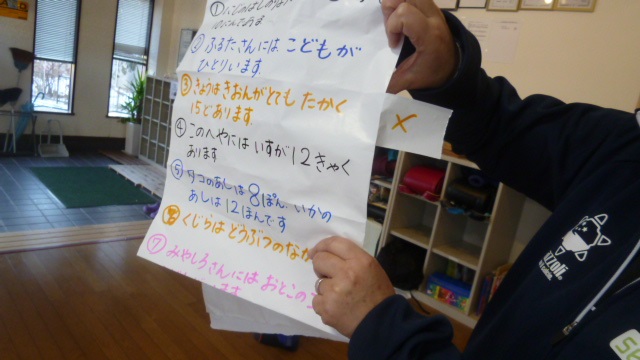 ②ふるたさんには こどもが
ひとりいます
③きょうは きおんがとても たかく
15どあります
④このへやには いすが12きゃく
あります
⑤タコのあしは8ぽん、いかの
あしは12ほんです
⑥くじらは どうぶつのなか
⑦みやしろさんには おとこのこ
×
IZZOLI.